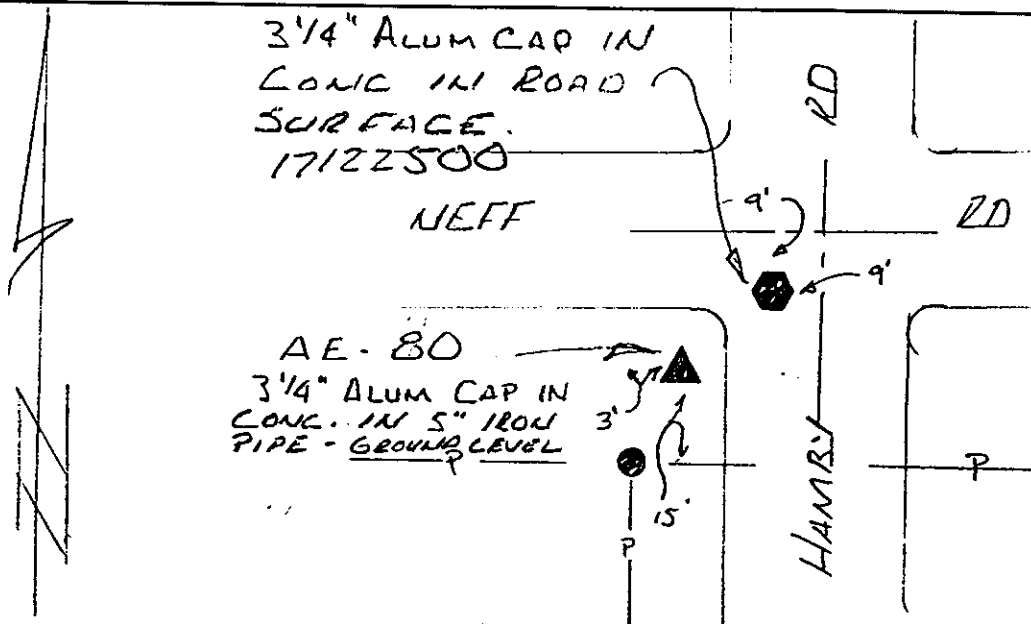 3 1/4" ALUM CAP IN
CONC IN ROAD
SURFACE.
17122500
RD
NEFF
9'
RD
9'
AE-80
3 1/4" ALUM CAP IN
CONC. IN 5" IRON
PIPE - GROUND LEVEL
3'
P
P
15'
P
HAMBY
N